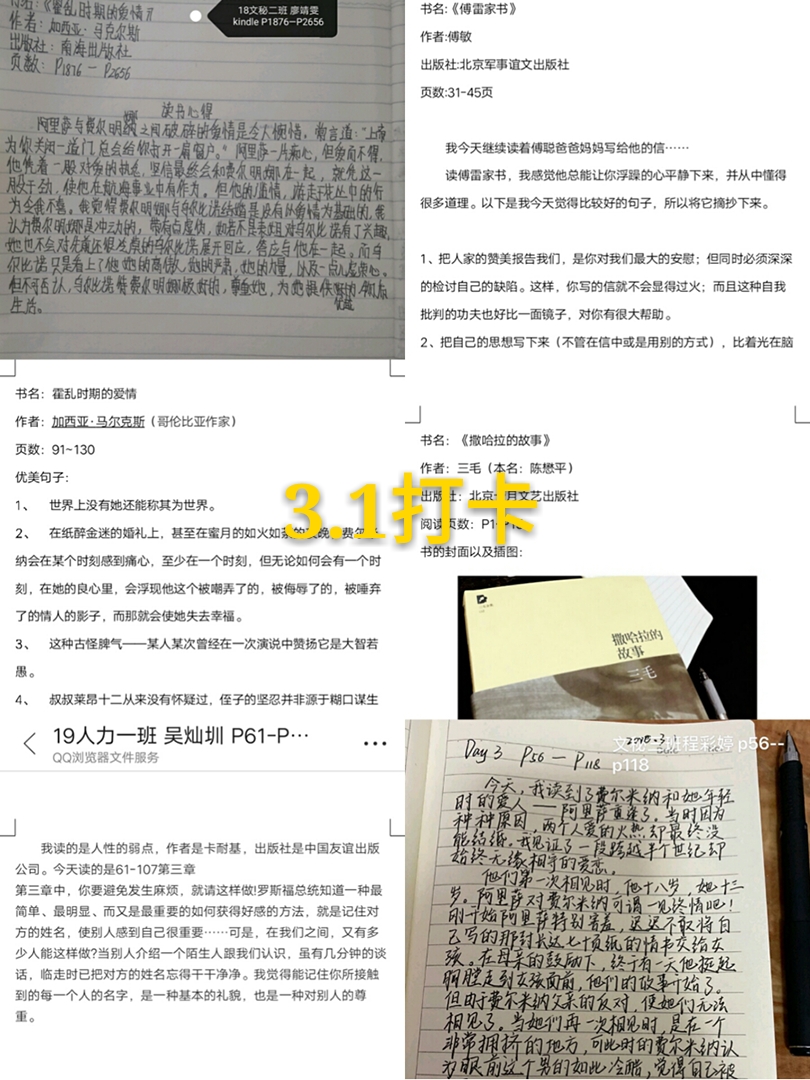 18文秘二班 廖靖雯
kindle P1876—P2656
书名：《霍乱时期的爱情》
作者：加西亚·马尔克斯
出版社：南海出版社
页数：P1876－P2656
读书心得
阿里萨与费尔明娜之间破碎的爱情是令人惋惜。常言道：“上帝
为你关闭一道门，总会给你打开一扇窗户。”阿里萨一片痴心，但爱而不得，
他凭着一股对爱的执念，坚信最终会和费尔明娜在一起，就凭这一
生活。
书名:《傅雷家书》
作者:傅敏
出版社:北京军事谊文出版社
页数:31-45页
我今天继续读着傅聪爸爸妈妈写给他的信……
读傅雷家书，我感觉他总能让你浮躁的心平静下来，并从中懂得
很多道理。以下是我今天觉得比较好的句子，所以将它摘抄下来。
1、把人家的赞美报告我们，是你对我们最大的安慰；但同时必须深深
的检讨自己的缺陷。这样，你写的信就不会显得过火；而且这种自我
批判的功夫也好比一面镜子，对你有很大帮助。
2、把自己的思想写下来（不管在信中或是用别的方式），比着光在脑
书名：霍乱时期的爱情
作者：加西亚·马尔克斯（哥伦比亚作家）
页数：91~130
优美句子：
1、 世界上没有她还能称其为世界。
2、 在纸醉金迷的婚礼上，甚至在蜜月的如火如茶的夜晚，费尔米
纳会在某个时刻感到痛心，至少在一个时刻，但无论如何会有一个时
刻，在她的良心里，会浮现他这个被嘲弄了的，被侮辱了的，被唾弃
了的情人的影子，而那就会使她失去幸福。
3、 这种古怪脾气——某人某次曾经在一次演说中赞扬它是大智若
愚。
4、 叔叔莱昂十二从来没有怀疑过，侄子的坚忍并非源于糊口谋生
3.1打卡
书名：《撒哈拉的故事》
作者：三毛（本名：陈懋平）
出版社：北京十月文艺出版社
阅读页数：P1
书的封面以及插图：
撒哈拉的
故事
三毛
19人力一班 吴灿圳 P61-P…
QQ浏览器文件服务
我读的是人性的弱点，作者是卡耐基，出版社是中国友谊出版
公司。今天读的是61-107第三章
第三章中，你要避免发生麻烦，就请这样做!罗斯福总统知道一种最
简单、最明显、而又是最重要的如何获得好感的方法，就是记住对
方的姓名，使别人感到自己很重要……可是，在我们之间，又有多
少人能这样做?当别人介绍一个陌生人跟我们认识，虽有几分钟的谈
话，临走时已把对方的姓名忘得干干净净。我觉得能记住你所接触
到的每一个人的名字，是一种基本的礼貌，也是一种对别人的尊
重。
文秘三班程彩婷 p56--
p118
Day 3 P56 — P118
今天，我读到了费尔米纳和她年轻
时的爱人——阿里萨重逢了。当时因为
种种原因，两个人爱的火热却最终没
能结婚。我见证了一段跨越半个世纪却
始终无缘相守的爱恋。
他们第一次相见时，他十八岁，她十三
岁。阿里萨对费尔米纳可谓一见终情吧！
刚开始阿里萨特别害羞，迟迟不敢将自
己写的那封长达七十页纸的情书交给女
孩。在母亲的鼓励下，终于有一天他挺起
胸膛走到女孩面前，他们的故事开始了。
但由于费尔米纳父亲的反对，使她们无法
相见了。当她们再一次相见时，是在一个
非常拥挤的地方，可此时的费尔米纳认
为眼前这个男的如此冷酷，觉得自己被